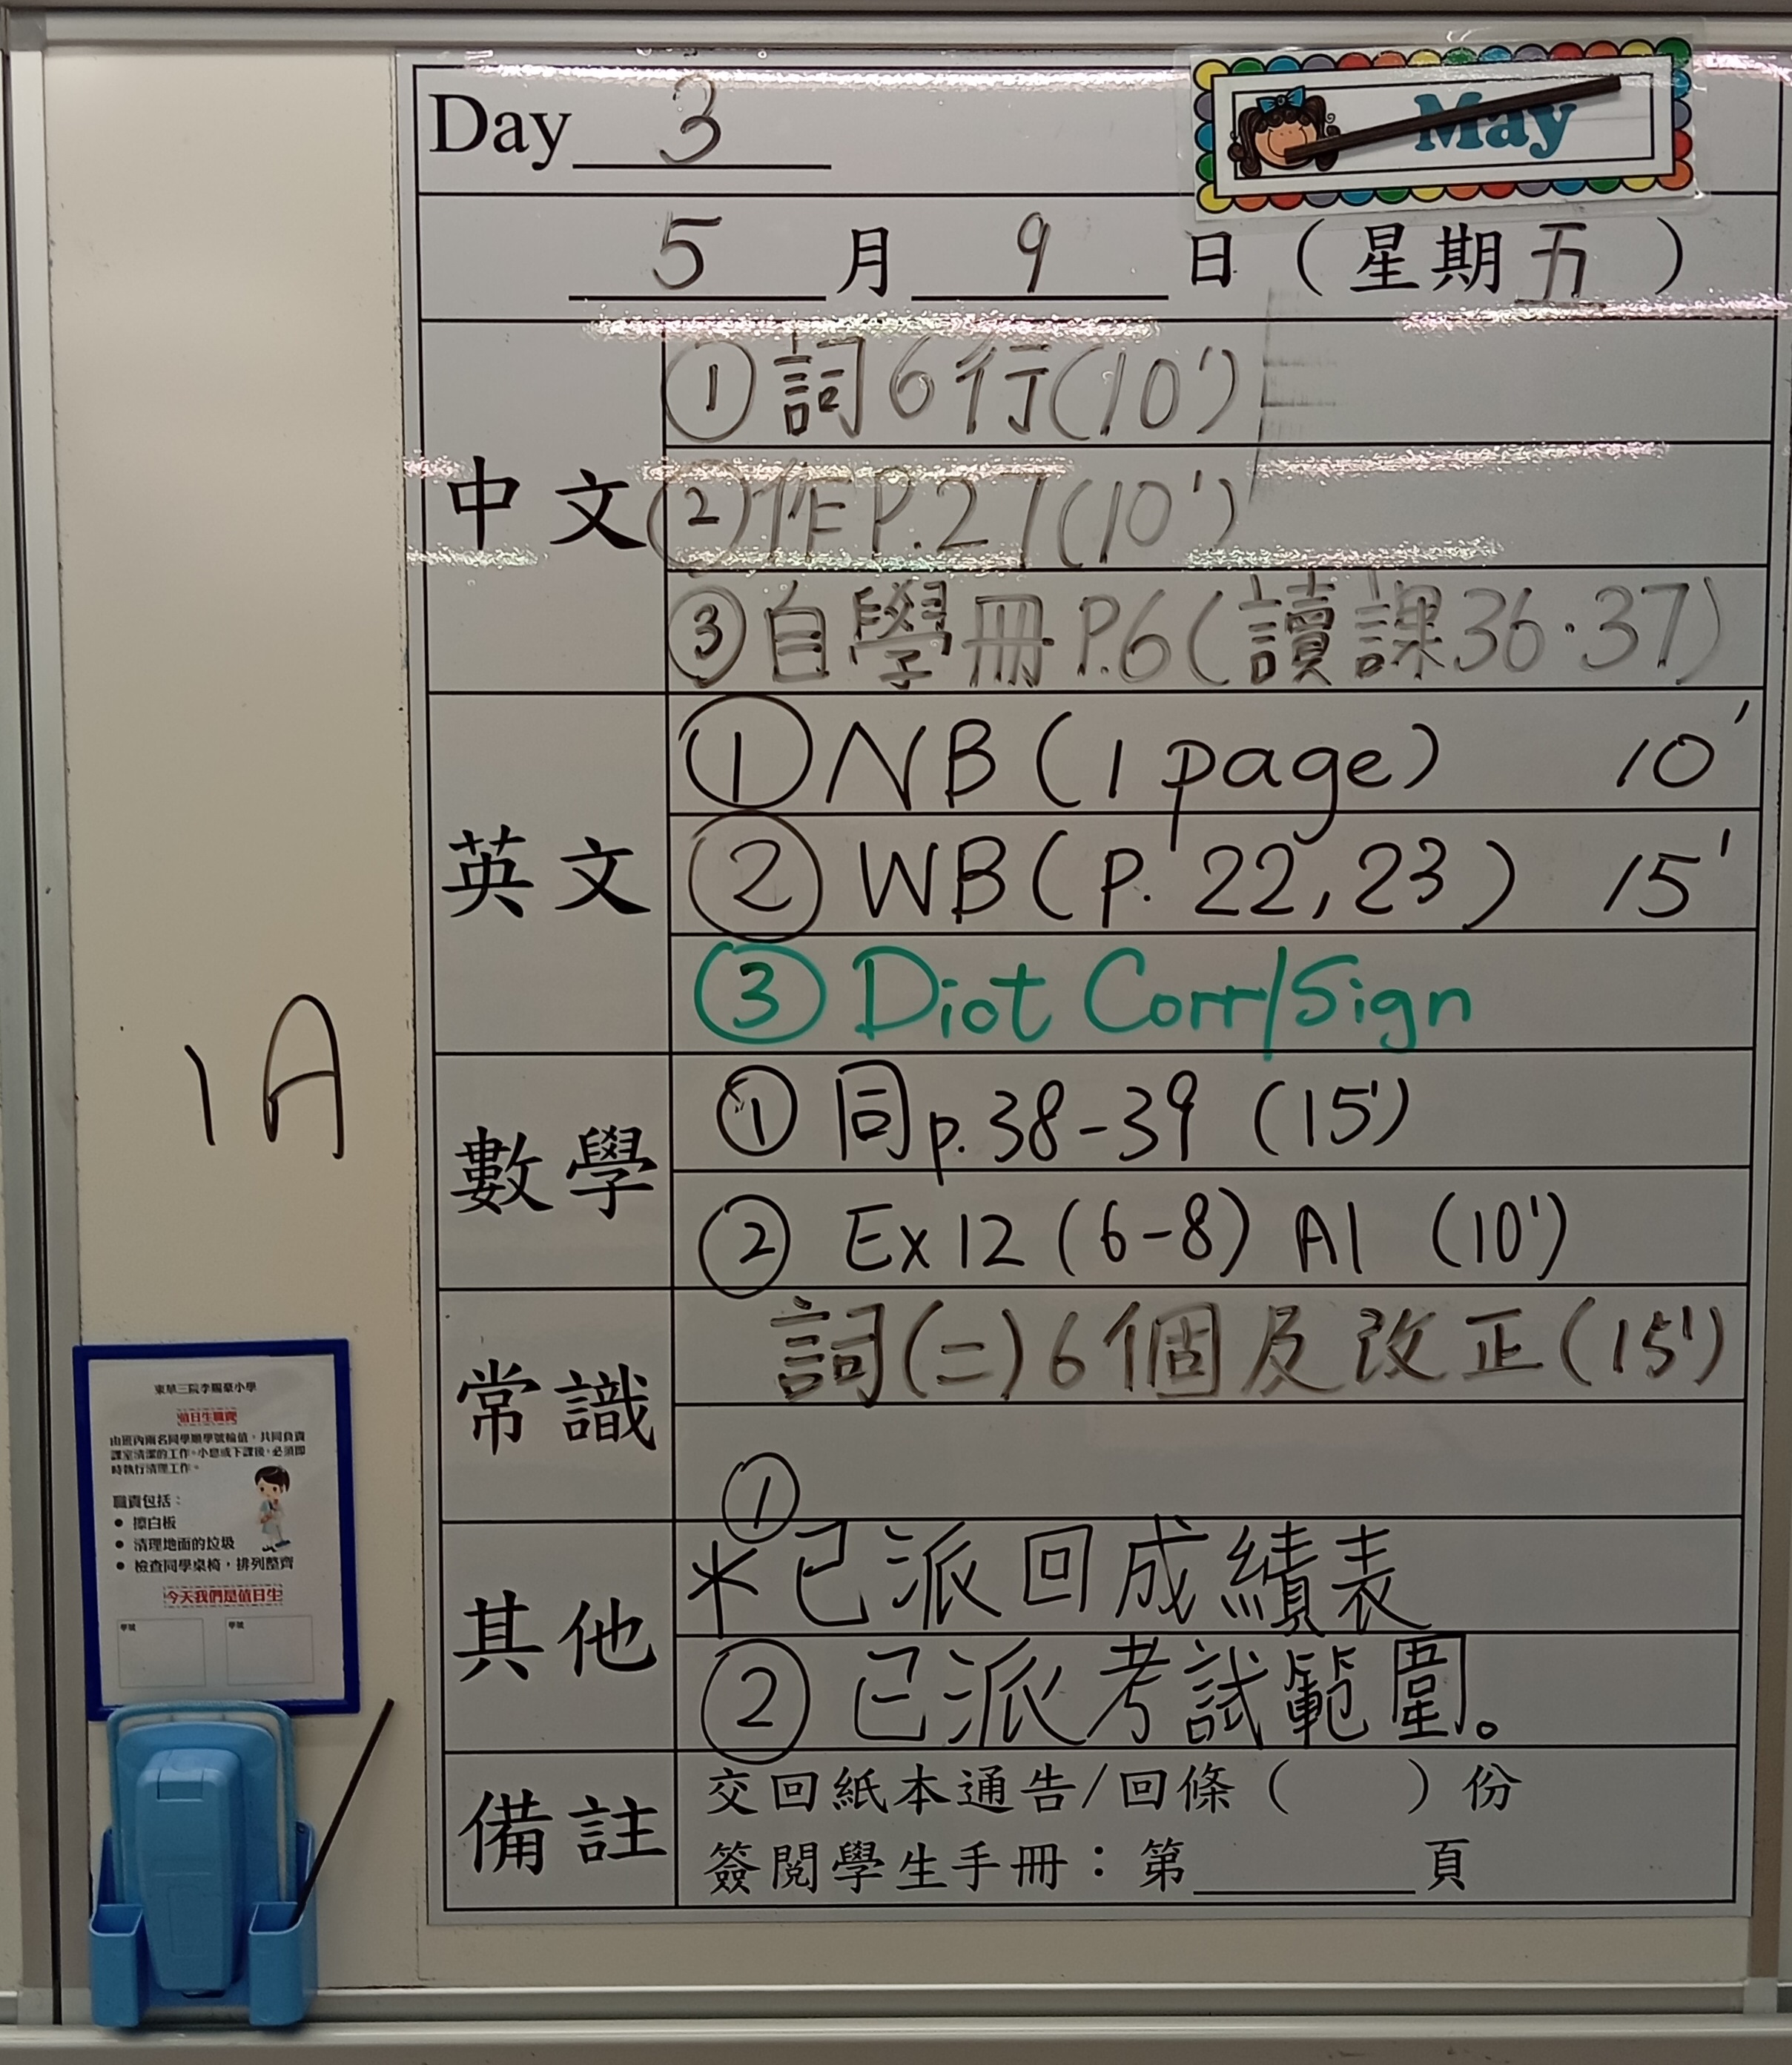 Day 3
May
5 月 9 日 (星期五)
中文
①詞6行(10')
②作P.27(10')
③自學冊P.6(讀課36·37)
英文
① NB (1 page) 10'
② WB (p. 22, 23) 15'
③ Dict Corr/Sign
數學
① 同p.38-39 (15')
② Ex12 (6-8) A1 (10')
常識
詞(二)6個及改正(15')
其他
①
*已派回成績表
② 已派考試範圍。
備註
交回紙本通告/回條( )份
簽閱學生手冊:第 頁
1A
東華三院李賜豪小學
值日生職責
由班內兩名同學順學號輪值,共同負責
課室清潔的工作。小息或下課後,必須即
時執行清理工作。
職責包括:
• 擦白板
• 清理地面的垃圾
• 檢查同學桌椅,排列整齊
今天我們是值日生
學號 學號